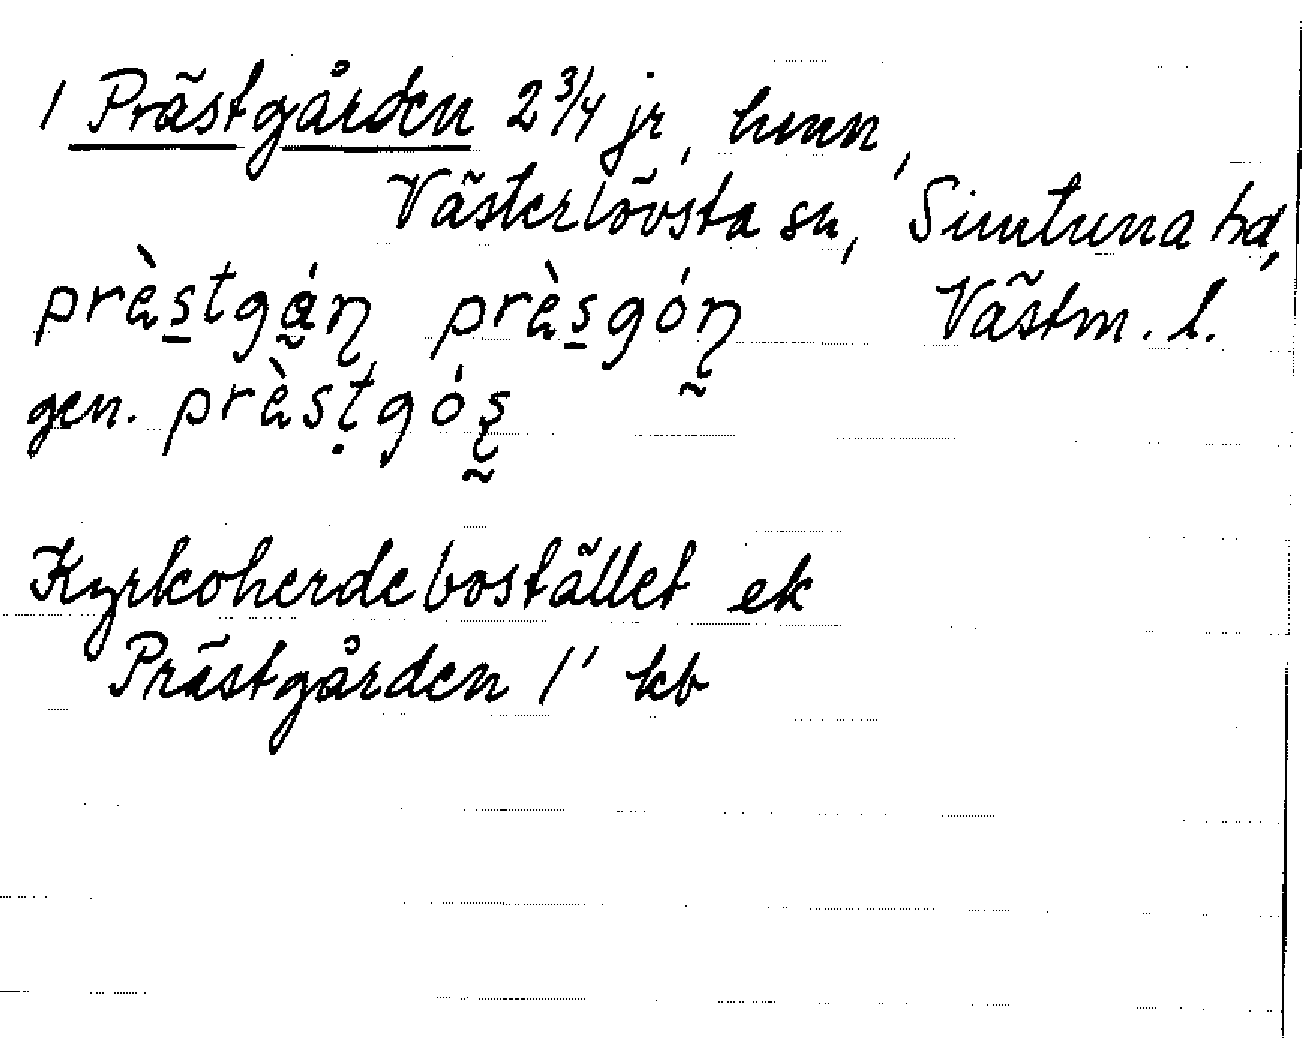 1 Prästgården 2 3/4 jr, hmn,
Västerlövsta sn, Simtuna hd,
prὲs̠tgá̰ɳ prὲs̠góɳ̰ Västm. l.
gen. prὲsṭgóʂ̰
Kyrkoherdebostället ek
Prästgården 1' kb